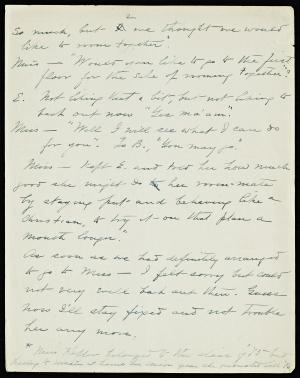 2
So much, but we thought we would
like to room together".
Miss — "Would you like to go to the first
floor for the sake of rooming together"?
E. Not liking that a bit, but not liking to
back out now "Yes ma'am".
Miss — "Well I will see what I can do
for you". To B., "You may go."
Miss — kept E. and told her how much
good she might do her room-mate
by staying put and behaving like a
Christian, to try it on that plan a
month longer."
As soon as we had definitely arranged
to go to Miss — I felt sorry but could
not very well back out then. Guess
now I'll stay fixed and not trouble
her any more.
* Miss belonged to the class of but
having to at home senior year she graduated with